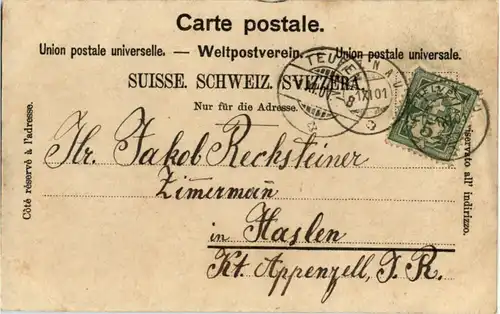 Carte postale.
Union postale universelle. — Weltpostverein. — Unione postale universale.
SUISSE. SCHWEIZ. SVIZZERA.
Nur für die Adresse.
Côté réservé à l'adresse.
Hr. Jakob Rechsteiner
Zimermañ
in Haslen
Kt. Appenzell, I. R.
riservato all' indirizzo.
TEUFEN
XI.01
1.XI.01
HELVETIA
5